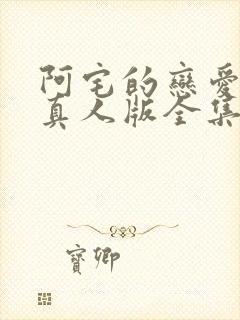 阿宅的戀愛
真人版全集
寶卿